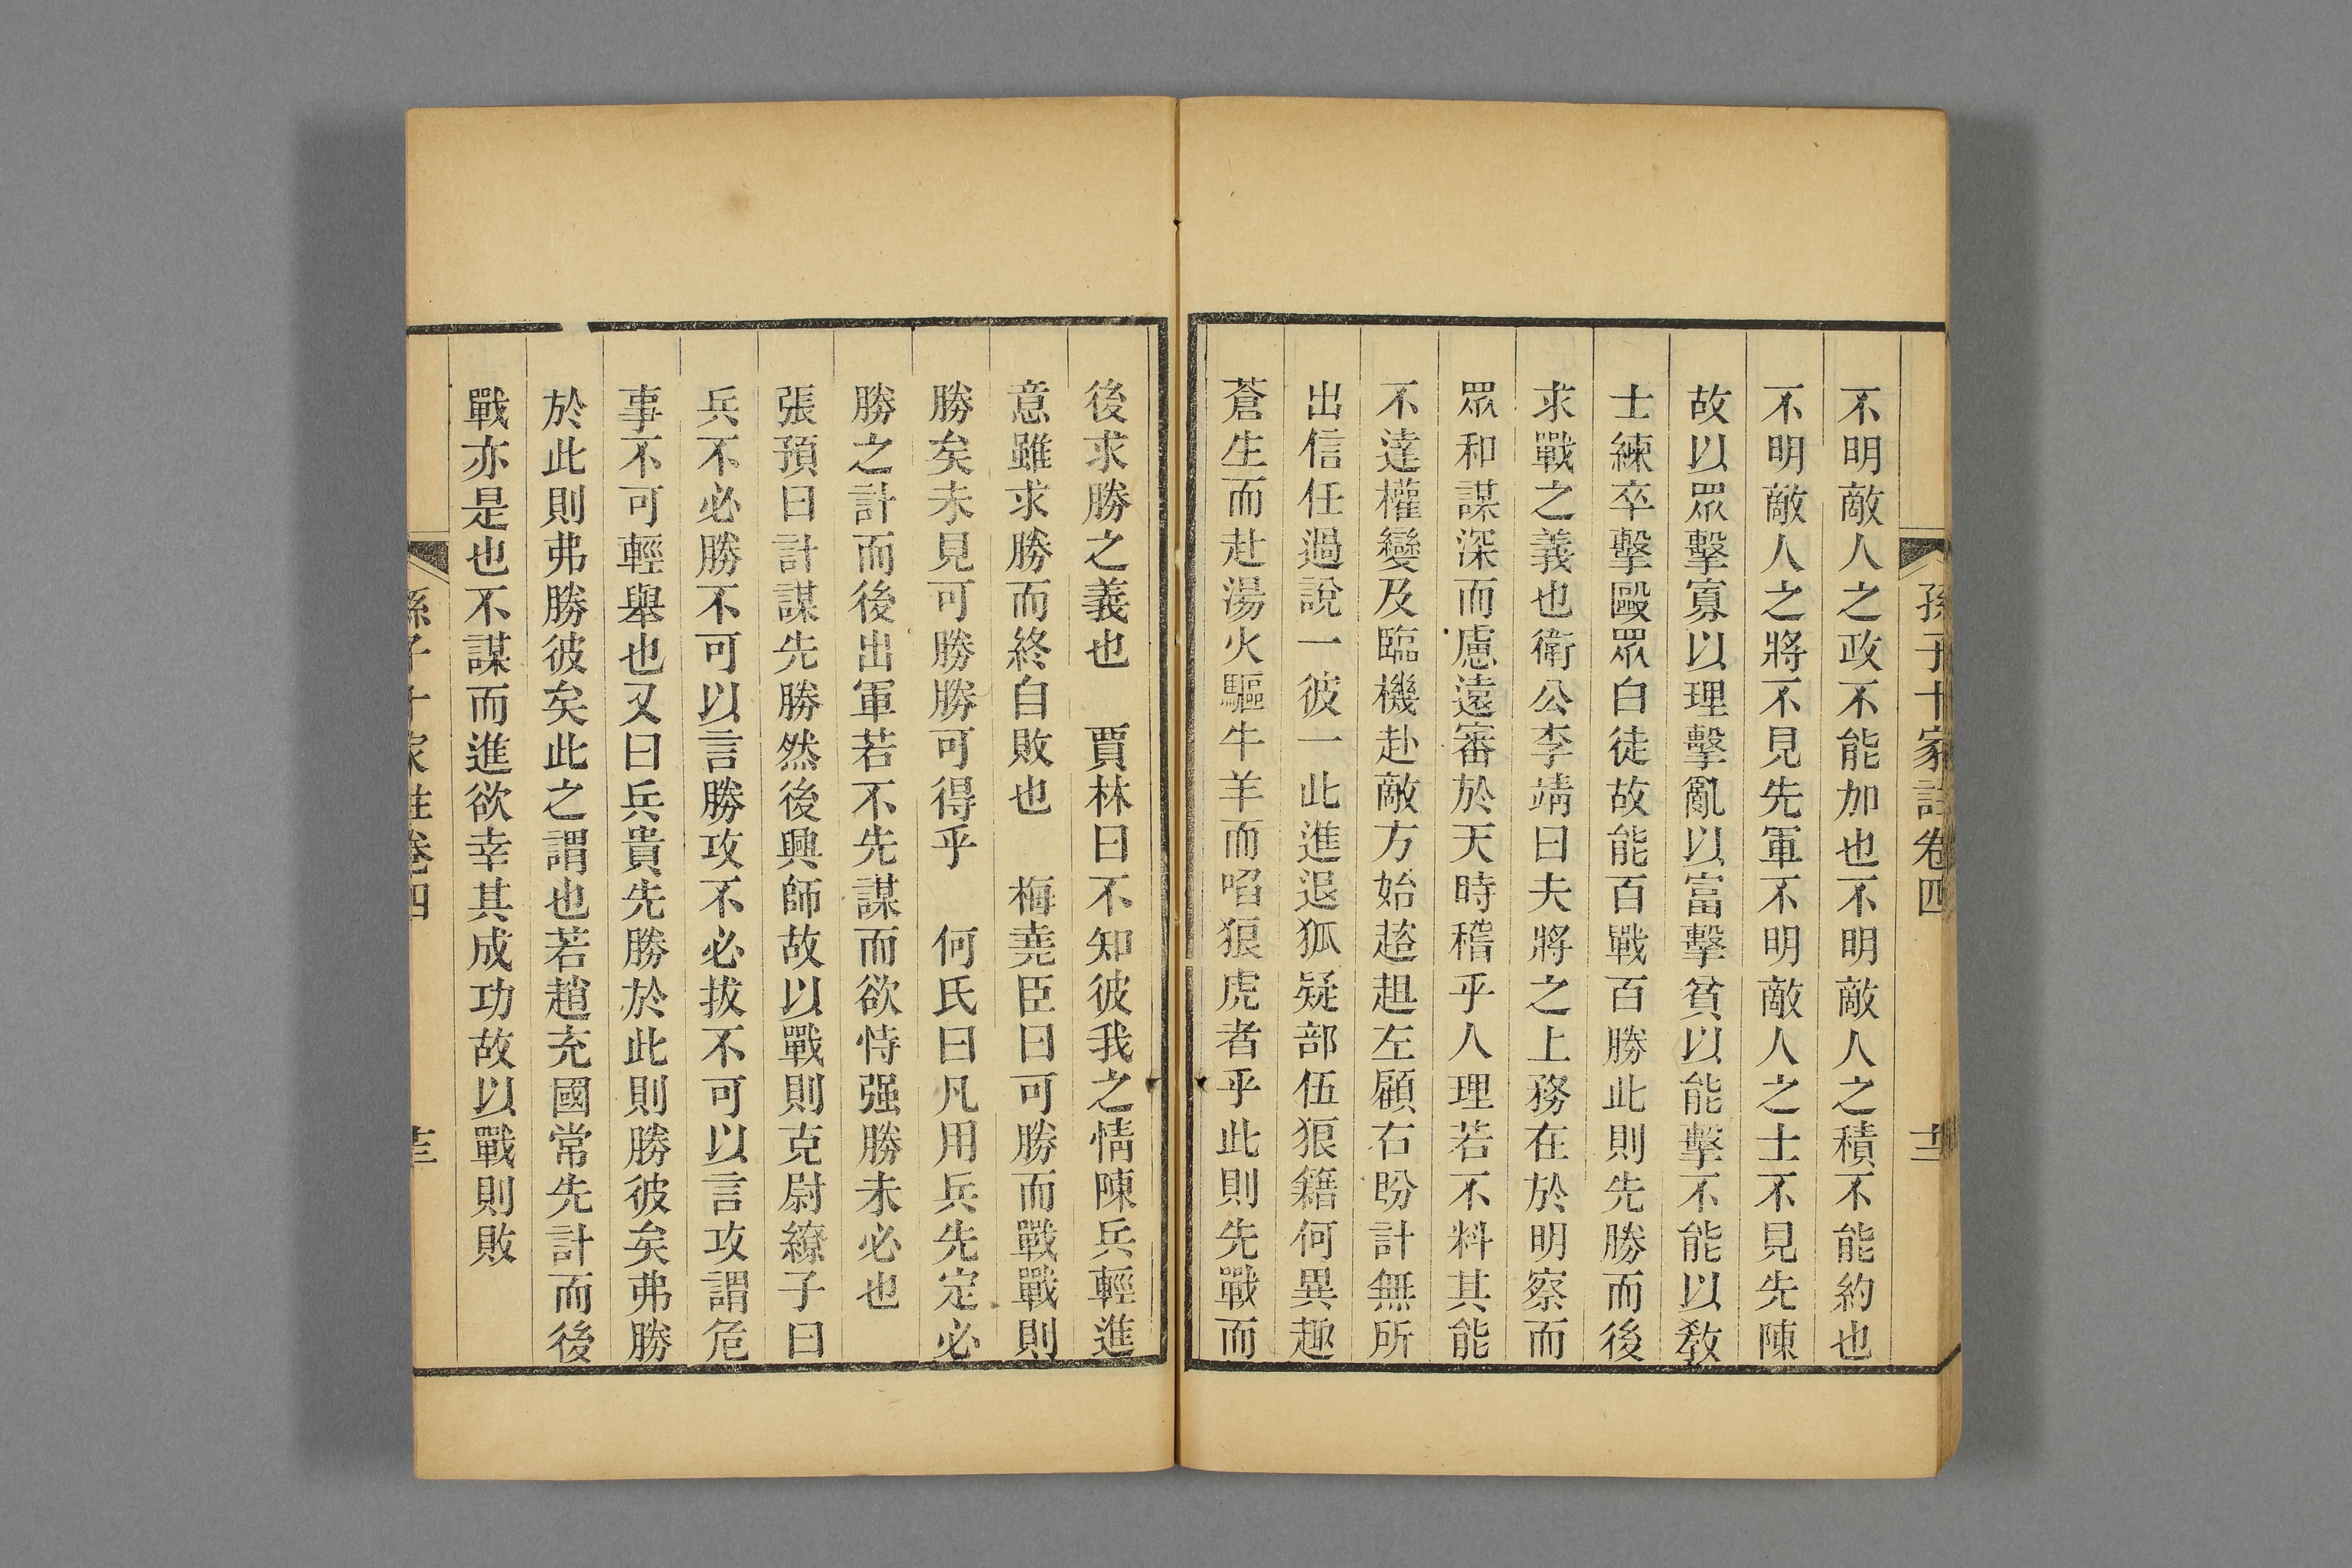 孫子十家註卷四
十二
不明敵人之政不能加也不明敵人之積不能約也
不明敵人之將不見先軍不明敵人之士不見先陳
故以眾擊寡以理擊亂以富擊貧以能擊不能以敎
士練卒擊毆眾白徒故能百戰百勝此則先勝而後
求戰之義也衛公李靖曰夫將之上務在於明察而
眾和謀深而慮遠審於天時稽乎人理若不料其能
不達權變及臨機赴敵方始趑趄左顧右盼計無所
出信任過說一彼一此進退狐疑部伍狼籍何異趣
蒼生而赴湯火驅牛羊而啗狼虎者乎此則先戰而
後求勝之義也　賈林曰不知彼我之情陳兵輕進
意雖求勝而終自敗也　梅堯臣曰可勝而戰戰則
勝矣未見可勝勝可得乎　何氏曰凡用兵先定必
勝之計而後出軍若不先謀而欲恃强勝未必也
張預曰計謀先勝然後興師故以戰則克尉繚子曰
兵不必勝不可以言勝攻不必拔不可以言攻謂危
事不可輕舉也又曰兵貴先勝於此則勝彼矣弗勝
於此則弗勝彼矣此之謂也若趙充國常先計而後
戰亦是也不謀而進欲幸其成功故以戰則敗
孫子十家註卷四
十三